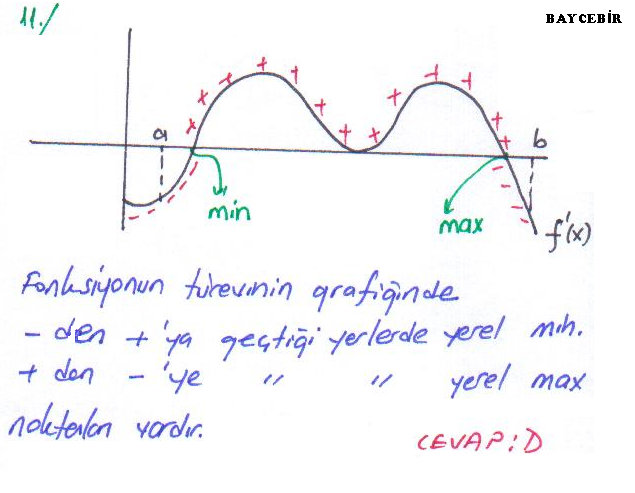 11./
BAYCEBİR
+ + + + + + + + + + + + + +
a
b
min
max
f'(x)
Fonksiyonun türevinin grafiğinde
- den + 'ya geçtiği yerlerde yerel min.
+ dan - 'ye " " yerel max
noktaları vardır.
CEVAP: D